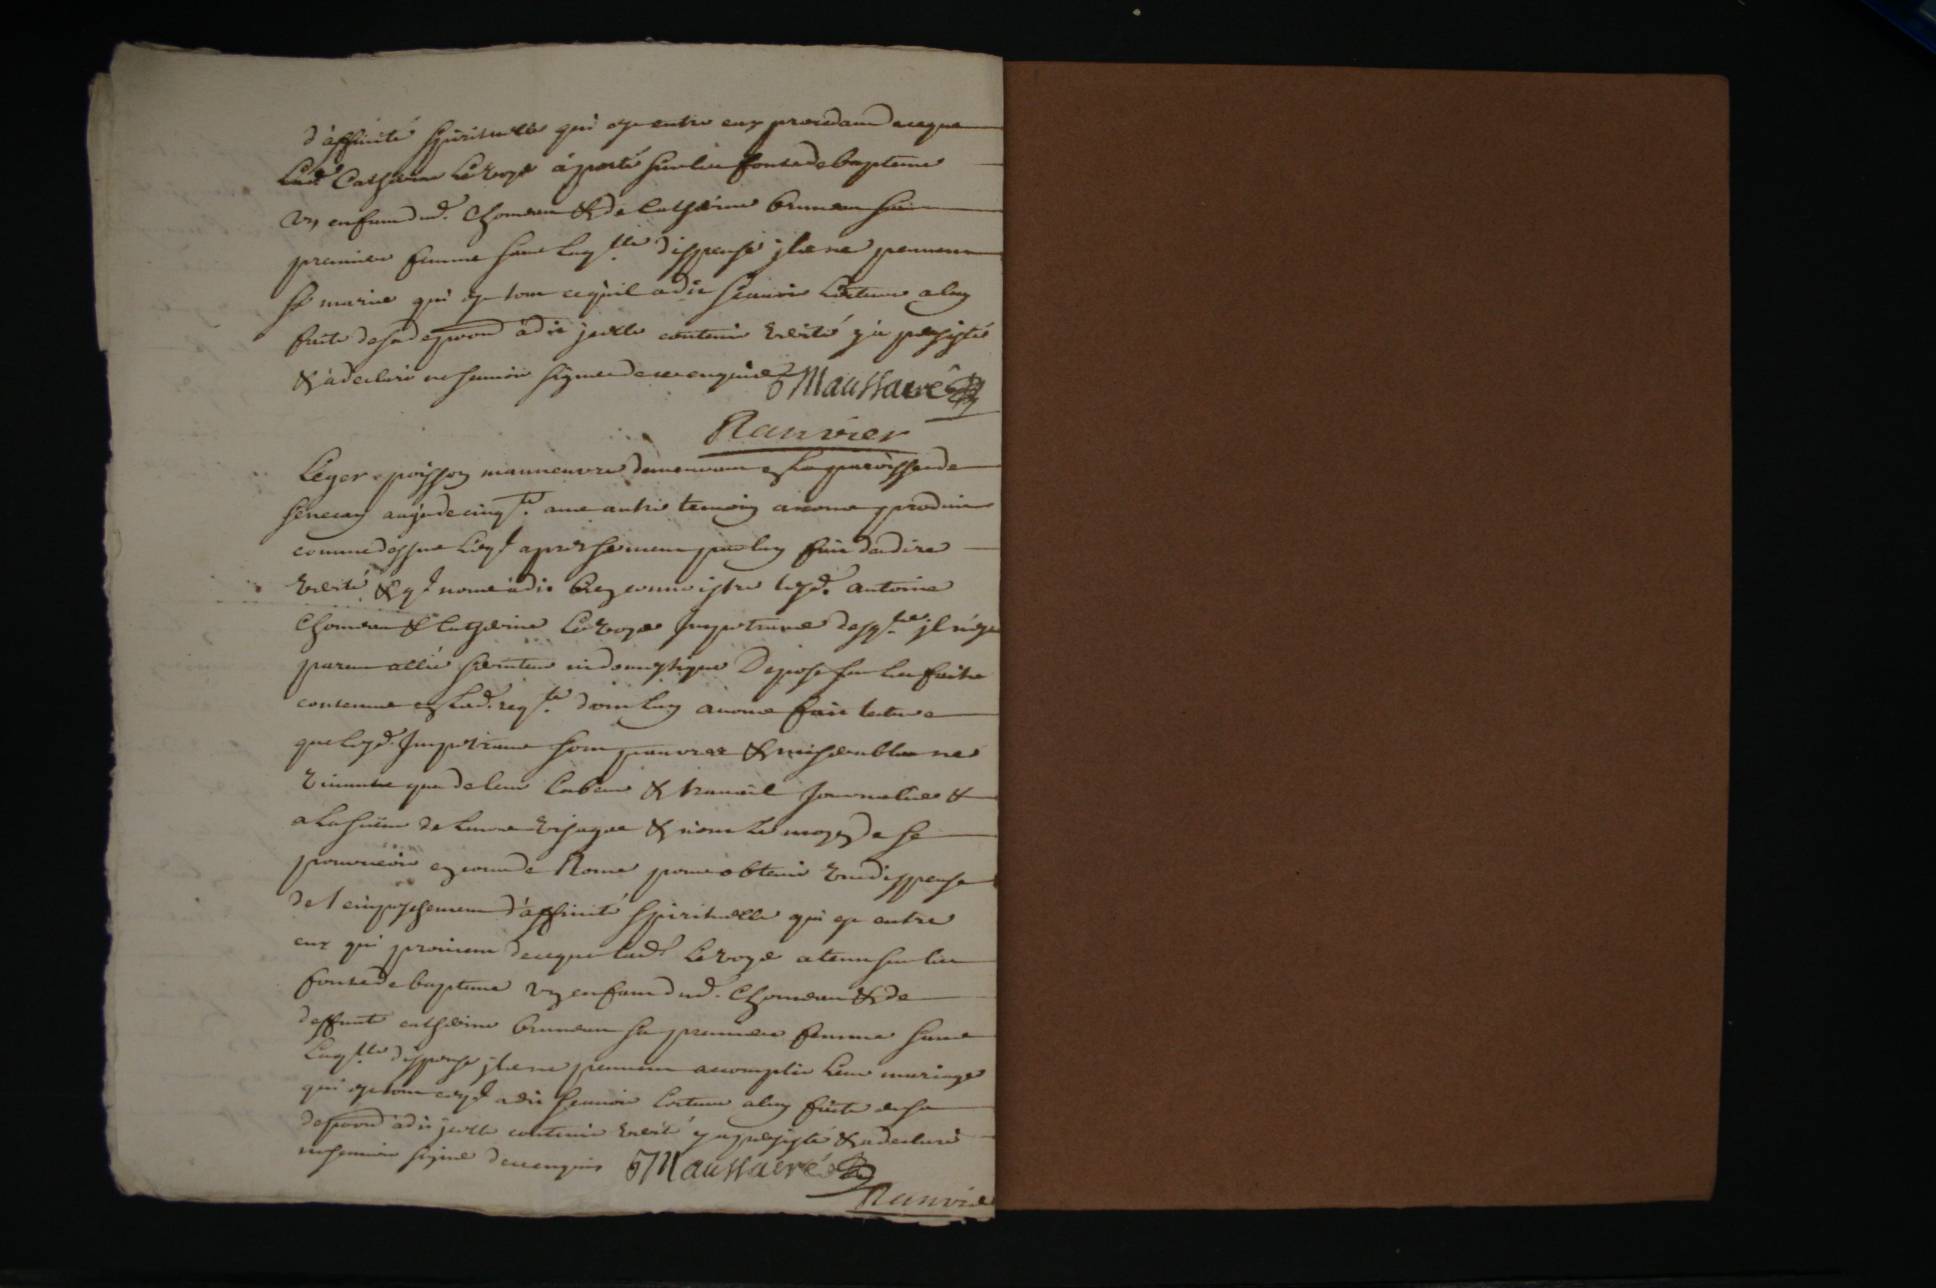 d'affinité spirituelle qui est entre eux procedant de ce que
lad. Catherine Leroyé a porté sur les fonts de bapteme
un enfant dud. Chomeau & de Catherine Bruneau sa
premiere femme sans laq.lle dispense ils ne peuvent
se marier qui est tout ce qu'il a dit scavoir lecture a luy
faite de sa deposition a dit icelle contenir verité y a persisté
& a declaré ne scavoir signer de ce enquis
Maussabré
Ranvier
Leger poisson manneuvre demeurant en la paroisse de
senecay aagé de cinq.te ans autre temoin a nous produit
comme dessus leq.l apres serment par luy fait de dire
verité & q.l nous a dit bien connoistre lesd. antoine
Chomeau & Catherine Leroyé Impetrants desq.ls il n'est
parent allié serviteur ni domestique Depose sur les faits
contenus en lad. req.te dont luy avons fait lecture
que lesd. Impetrans sont pauvres & miserables ne
vivants que de leur labeur & travail Journalier &
a la sueur de leurs visages & n'ont le moyen de se
pourvoir en cour de Rome pour obtenir une dispense
de l'empeschement d'affinité spirituelle qui est entre
eux qui provient de ce que lad. Leroyé a tenu sur les
fonts de bapteme un enfant dud. Chomeau & de
deffunte catherine bruneau sa premiere femme sans
laq.lle dispense ils ne peuvent accomplir leur mariage
qui est tout ce q.l a dit scavoir lecture a luy faite de sa
deposition a dit icelle contenir verité y a persisté & a declaré
ne scavoir signer de ce enquis Maussabré
Ranvier